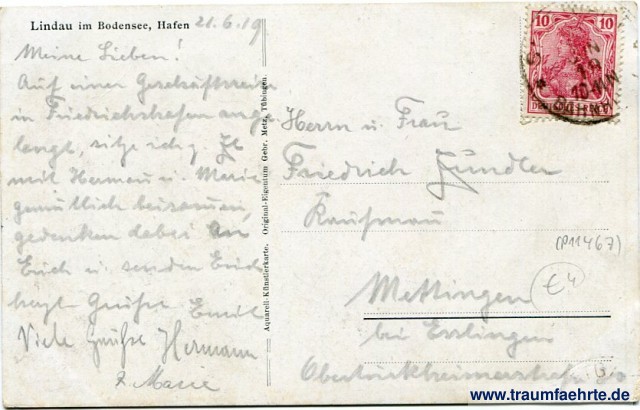 Lindau im Bodensee, Hafen 21.6.19
Meine Lieben!
Auf einer Geschäftsreise
in Friedrichshafen ange
langt, sitze ich
mit Herman u. Marie
gemütlich beisamen,
gedenken dabei an
Euch u. senden Euch
Grüße Emil
Viele Grüße Hermann
& Marie
Aquarell-Künstlerkarte. Original-Eigentum Gebr. Metz, Tübingen.
10 10
Herrn u. Frau
Friedrich
Kaufmann
(P11467)
€4
Mettingen
bei Esslingen
www.traumfaehrte.de